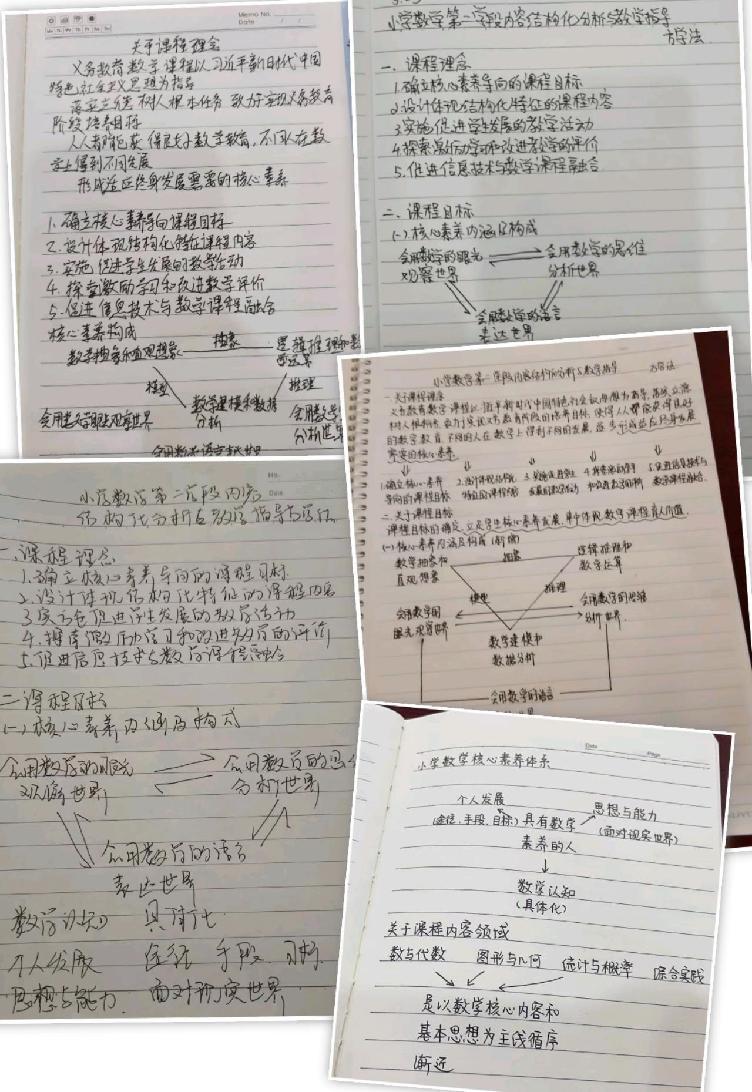 Memo No.
Date
关于课程理念
义务教育数学课程以习近平新时代中国
特色社会主义思想为指导
落实立德树人根本任务 致力于实现义务教育
阶段培养目标
人人都能获得良好数学教育,不同人在数
学上得到不同发展
形成适应终身发展需要的核心素养
1.确立核心素养导向课程目标
2.设计体现结构化特征课程内容
3.实施促进学生发展的教学活动
4.探索激励学习和改进教学评价
5.促进信息技术与数学课程融合
核心素养构成
数学抽象和直观想象
抽象
逻辑推理和数
学运算
模型
推理
数学建模和数据
分析
会用数学眼光观察世界
会用数学
分析世界
会用数学语言表达世界
小学数学第二学段内容结构化分析与教学指导
方学法
一、课程理念
1.确立核心素养导向的课程目标
2.设计体现结构化特征的课程内容
3.实施促进学生发展的教学活动
4.探索激励学习和改进教学的评价
5.促进信息技术与数学课程融合
二、课程目标
(一)核心素养内涵及构成
会用数学的眼光
观察世界
会用数学的思维
分析世界
会用数学的语言
表达世界
小学数学第二学段内容结构分析与教学指导 方学法
一.关于课程理念
1.确立核心素养
导向的课程目标
2.设计体现结构化
特征的课程内容
3.实施促进学生
发展的教学活动
4.探索激励学习
和改进教学的评价
5.促进信息技术与
数学课程融合.
二.关于课程目标
课程目标的确定,立足学生核心素养发展,集中体现数学课程育人价值.
数学抽象和
直观想象
抽象
逻辑推理和
数学运算
模型
推理
会用数学的
眼光观察世界
会用数学思维
分析世界.
数学建模和
数据分析
会用数学的语言
No.
Date
小学数学第二学段内容
结构化分析与教学指导方学法
一、课程理念
1.确立核心素养导向的课程目标
2.设计体现结构化特征的课程内容
3.实施促进学生发展的教学活动
4.探索激励学习和改进教学的评价
5.促进信息技术与数学课程融合
二课程目标
(一)核心素养内涵及构成
会用数学的眼光
观察世界
会用数学的思维
分析世界
会用数学的语言
表达世界
数学认知 具体化
个人发展 途径 手段 目标
思想与能力 面对现实世界
Date
Page
小学数学核心素养体系
个人发展
思想与能力
(途径,手段,目标)
具有数学
素养的人
(面对现实世界)
数学认知
(具体化)
关于课程内容领域
数与代数 图形与几何 统计与概率 综合实践
是以数学核心内容和
基本思想为主线循序
渐近